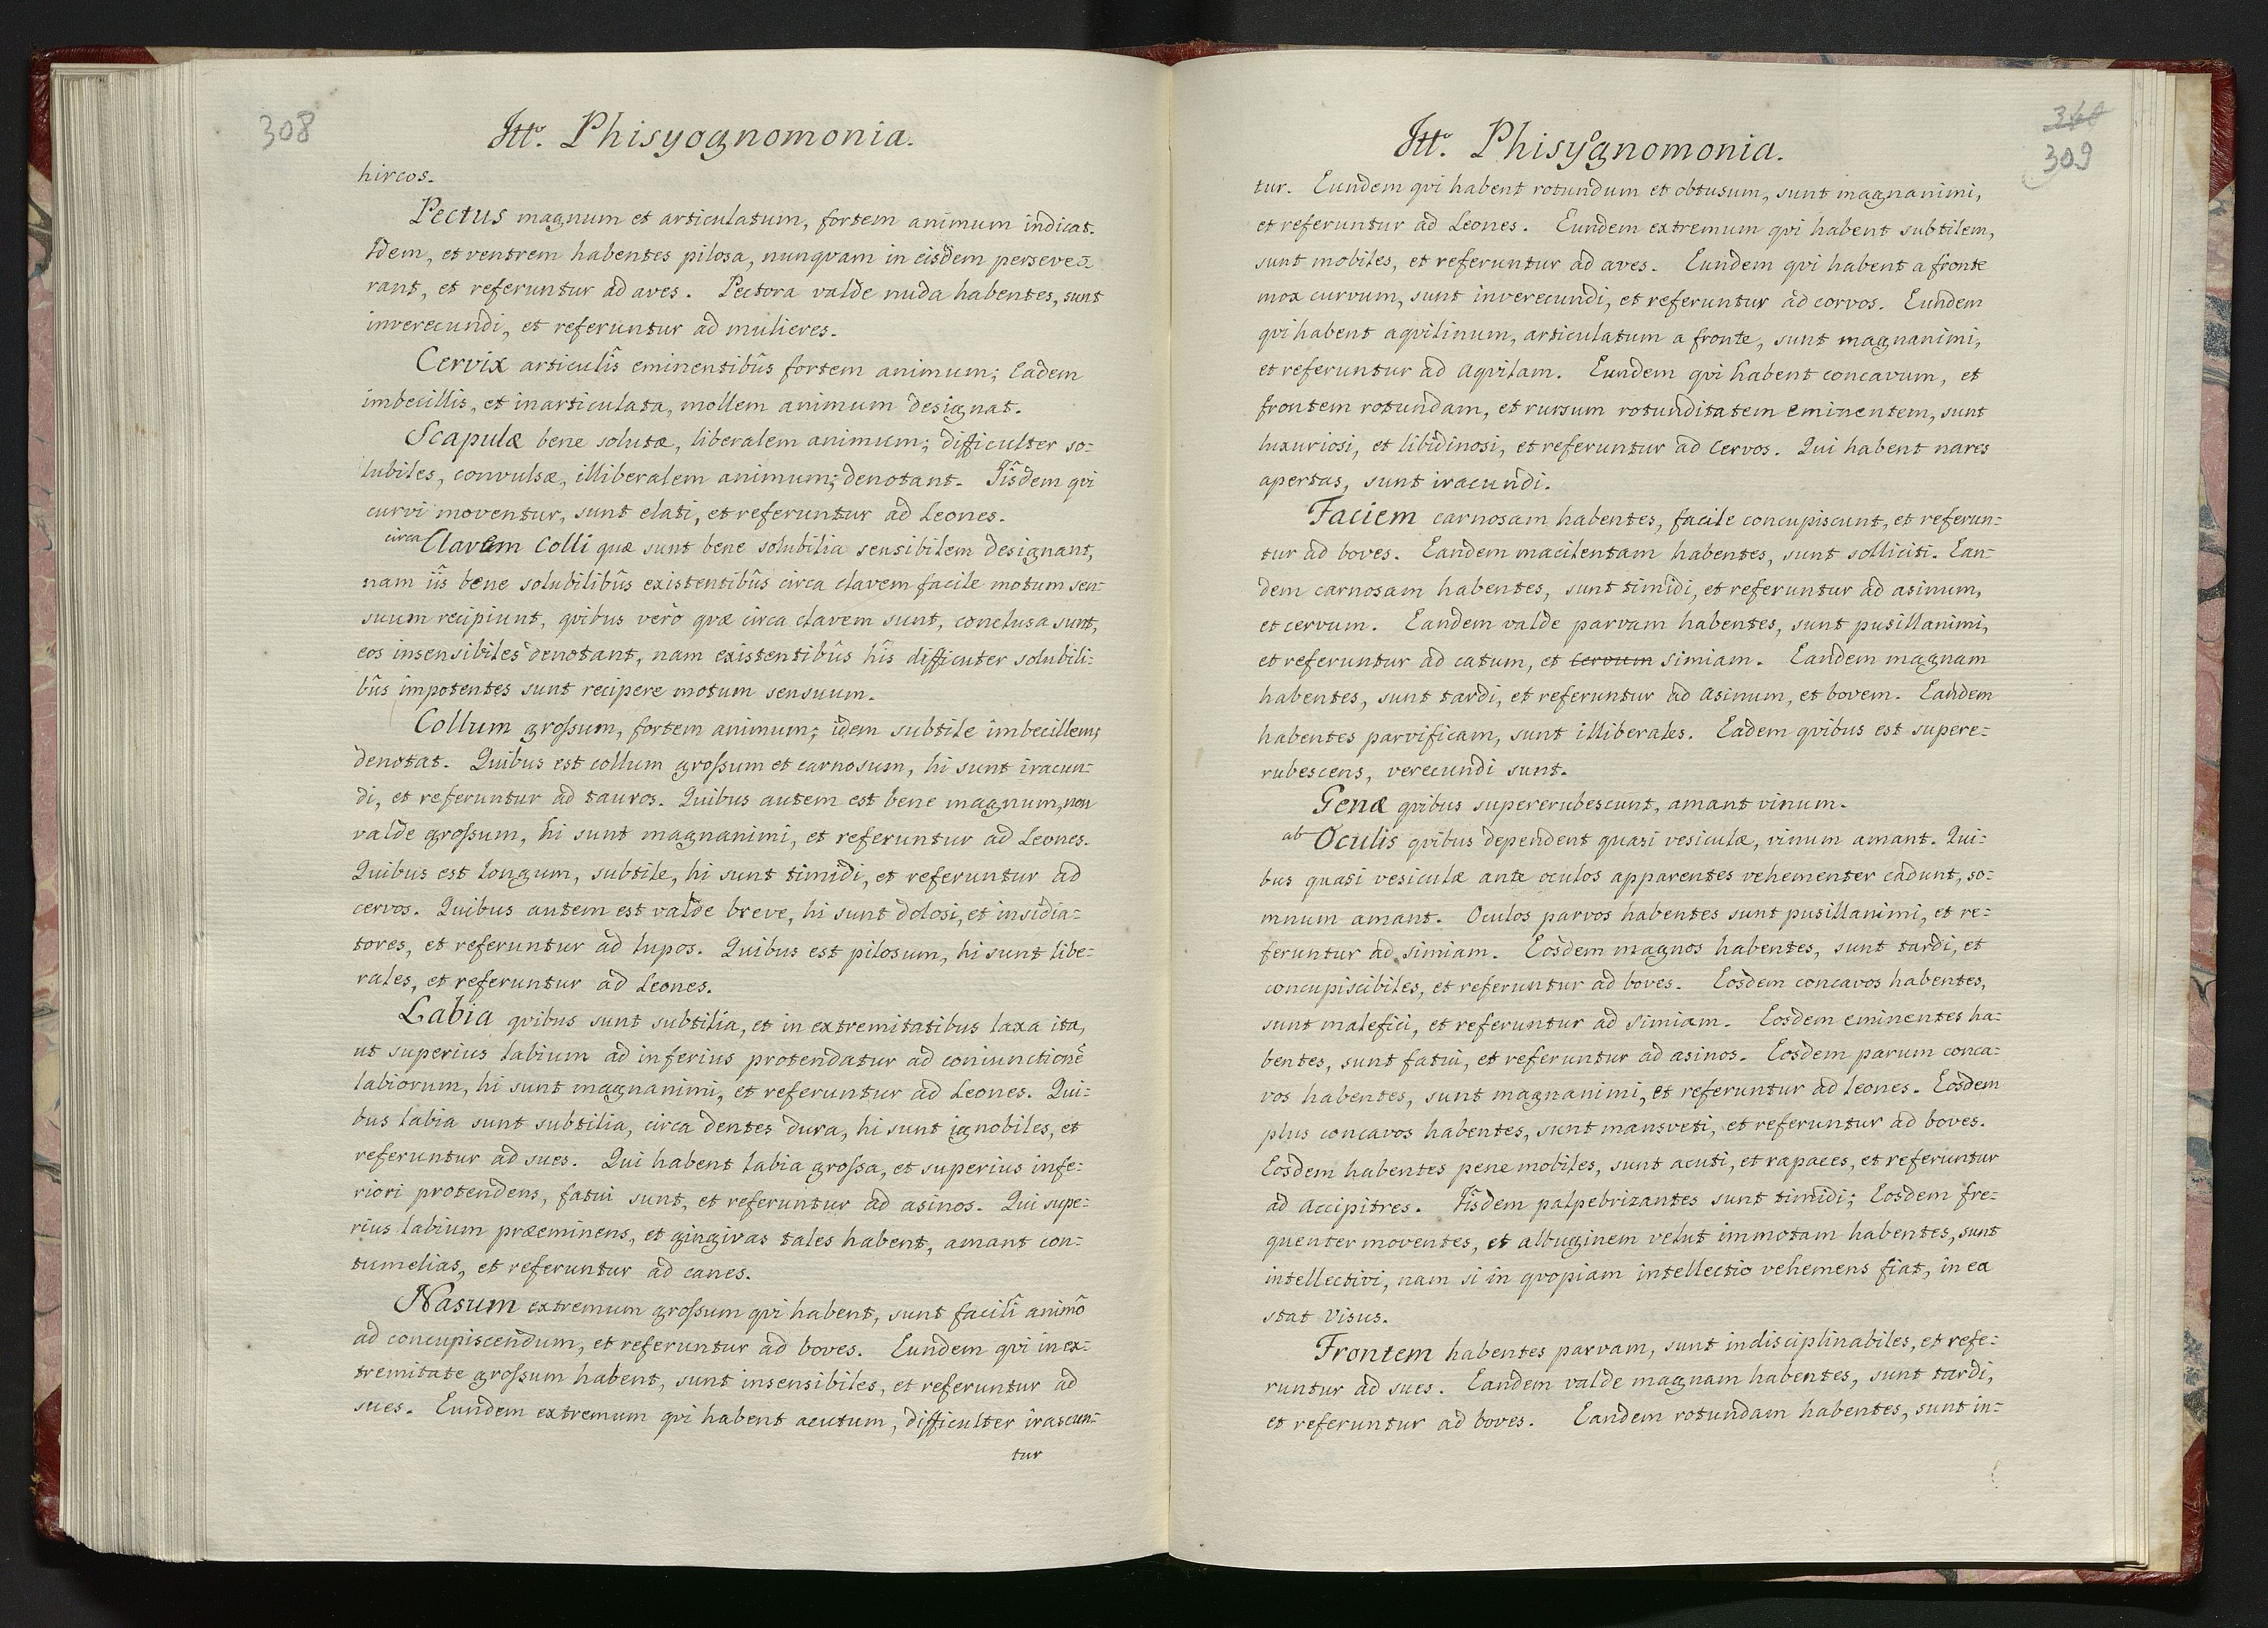 308
Itt. Phisyognomonia.
hircos.
Pectus magnum et articulatum, fortem animum indicat.
Idem, et ventrem habentes pilosa, nunqvam in eisdem perseve=
rant, et referuntur ad aves. Pectora valde nuda habentes, sunt
inverecundi, et referuntur ad mulieres.
Cervix articulîs eminentibûs fortem animum; Eadem
imbecillis, et inarticulata, mollem animum designat.
Scapulæ bene solutæ, liberalem animum; difficulter so=
lubiles, convulsæ, illiberalem animum; denotant. Iîsdem qvi
curvi moventur, sunt elati, et referuntur ad Leones.
circa Clavem Colli quæ sunt bene solubilia sensibilem designant,
nam iîs bene solubilibûs existentibûs circa clavem facile motum sen=
suum recipiunt, qvibus verò qvæ circa clavem sunt, conclusa sunt,
eos insensibiles denotant, nam existentibûs hîs difficuter solubili=
bûs impotentes sunt recipere motum sensuum.
Collum grossum, fortem animum; idem subtile imbecillem;
denotat. Quibus est collum grossum et carnosum, hi sunt iracun=
di, et referuntur ad tauros. Quibus autem est bene magnum, non
valde grossum, hi sunt magnanimi, et referuntur ad Leones.
Quibus est longum, subtile, hi sunt timidi, et referuntur ad
cervos. Quibus autem est valde breve, hi sunt dolosi, et insidia=
tores, et referuntur ad lupos. Quibus est pilosum, hi sunt libe=
rales, et referuntur ad Leones.
Labia qvibus sunt subtilia, et in extremitatibus laxa ita,
ut superius labium ad inferius protendatur ad coniunctionē
labiorum, hi sunt magnanimi, et referuntur ad Leones. Qui=
bus labia sunt subtilia, circa dentes dura, hi sunt ignobiles, et
referuntur ad sues. Qui habent labia grossa, et superius infe=
riori protendens, fatui sunt, et referuntur ad asinos. Qui supe=
rius labium præeminens, et gingivas tales habent, amant con=
tumelias, et referuntur ad canes.
Nasum extremum grossum qvi habent, sunt facilî animô
ad concupiscendum, et referuntur ad boves. Eundem qvi in ex=
tremitate grossum habent, sunt insensibiles, et referuntur ad
sues. Eundem extremum qvi habent acutum, difficulter irascun=
tur
310
309
Itt. Phisyognomonia.
tur. Eundem qvi habent rotundum et obtusum, sunt magnanimi,
et referuntur ad Leones. Eundem extremum qvi habent subtilem,
sunt mobiles, et referuntur ad aves. Eundem qvi habent a fronte
mox curvum, sunt inverecundi, et referuntur ad corvos. Eundem
qvi habent aqvilinum, articulatum a fronte, sunt magnanimi,
et referuntur ad aqvilam. Eundem qvi habent concavum, et
frontem rotundam, et rursum rotunditatem eminentem, sunt
luxuriosi, et libidinosi, et referuntur ad Cervos. Qui habent nares
apertas, sunt iracundi.
Faciem carnosam habentes, facile concupiscunt, et referun=
tur ad boves. Eandem macilentam habentes, sunt solliciti. Ean=
dem carnosam habentes, sunt timidi, et referuntur ad asinum,
et cervum. Eandem valde parvam habentes, sunt pusillanimi,
et referuntur ad catum, et cervum simiam. Eandem magnam
habentes, sunt tardi, et referuntur ad asinum, et bovem. Eandem
habentes parvificam, sunt illiberales. Eadem qvibus est supere=
rubescens, verecundi sunt.
Genæ qvibus supererubescunt, amant vinum.
ab Oculis qvibus dependent quasi vesiculæ, vinum amant. Qui=
bus quasi vesiculæ ante oculos apparentes vehementer cadunt, so=
mnum amant. Oculos parvos habentes sunt pusillanimi, et re=
feruntur ad simiam. Eosdem magnos habentes, sunt tardi, et
concupiscibiles, et referuntur ad boves. Eosdem concavos habentes,
sunt malefici, et referuntur ad simiam. Eosdem eminentes ha=
bentes, sunt fatui, et referuntur ad asinos. Eosdem parum conca=
vos habentes, sunt magnanimi, et referuntur ad leones. Eosdem
plus concavos habentes, sunt mansveti, et referuntur ad boves.
Eosdem habentes pene mobiles, sunt acuti, et rapaces, et referuntur
ad Accipitres. Iisdem palpebrizantes sunt timidi; Eosdem fre=
quenter moventes, et albuginem velut immotam habentes, sunt
intellectivi, nam si in qvopiam intellectio vehemens fiat, in ea
stat Visus.
Frontem habentes parvam, sunt indisciplinabiles, et refe=
runtur ad sues. Eandem valde magnam habentes, sunt tardi,
et referuntur ad boves. Eandem rotundam habentes, sunt in=